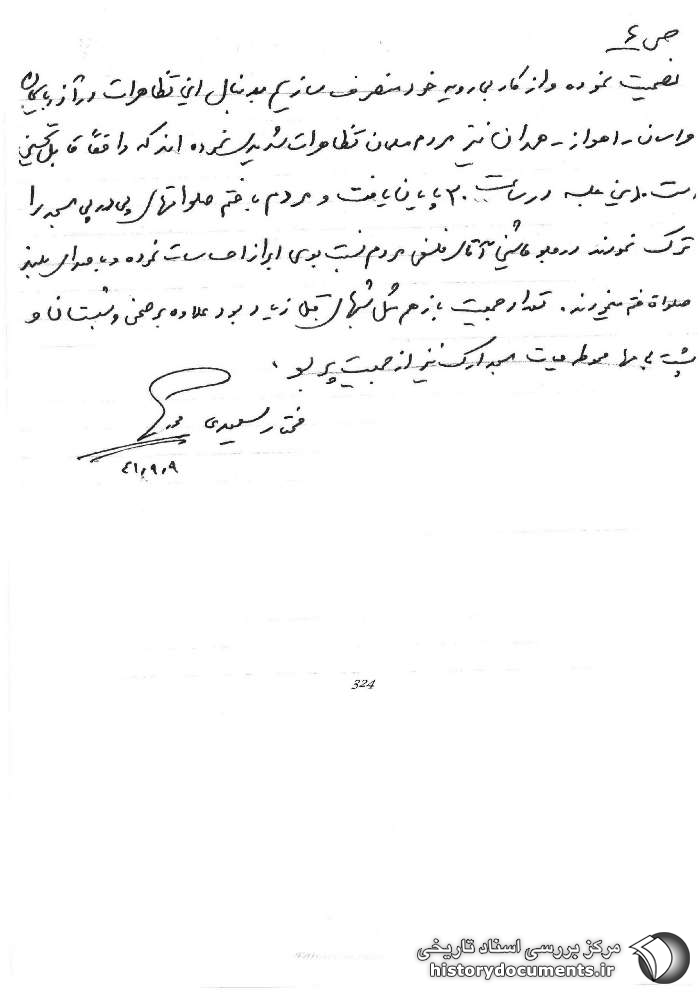 ص ۶
نصیحت نموده و از کار بی رویه خود منصرف سازیم بدنبال این تظاهرات در آذربایجان
خراسان - اهواز - همدان نیز مردم مسلمان تظاهرات شدیدی نموده اند که واقعاً قابل تحسین
است. این جلسه در ساعت ۳۰ پایان یافت و مردم با ختم صلواتهای پی در پی مسجد را
ترک نمودند در جلو ماشین آقای فلسفی مردم نسبت بوی ابراز احساسات نموده و با صدای بلند
صلواة ختم میکردند. تعداد جمعیت باز هم مثل شبهای قبل زیاد بود علاوه بر صحن و شبستان و
پشت بامها محوطه حیاط مسجد ارک نیز از جمعیت پر بود.
مختار سعیدی
۴۱,۹,۹
324
مرکز بررسی اسناد تاریخی
historydocuments.ir